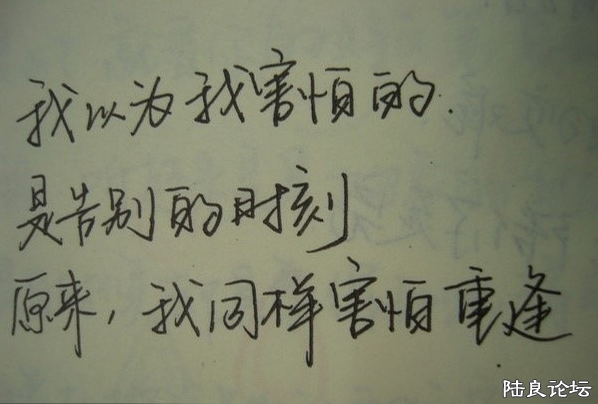 我以为我害怕的.
是告别的时刻
原来，我同样害怕重逢
陆良论坛